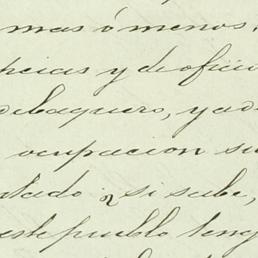 mas ó menos.
ncias y de oficio
de baquero, y ad
ocupacion su
tado; si sabe,
este pueblo teng